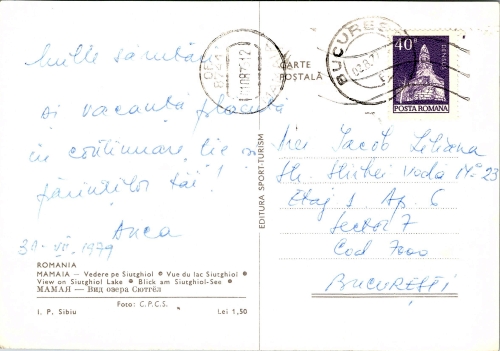 Multe sărutări
și vacanță plăcută
în continuare, ție și
părinților tăi!
Anca
30-VII-1979
ROMANIA
MAMAIA — Vedere pe Siutghiol • Vue du lac Siutghiol •
View on Siutghiol Lake • Blick am Siutghiol-See •
МАМАЯ — Вид озера Сютгёл
Foto: C.P.C.S.
I. P. Sibiu Lei 1,50
EDITURA SPORT-TURISM
CARTE
POȘTALĂ
BUCUREȘTI
40B
POSTA ROMANA
Iacob Liliana
Str. Știrbei Vodă Nº 23
Etaj 1 Ap. 6
Sector 7
Cod 7000
BUCUREȘTI